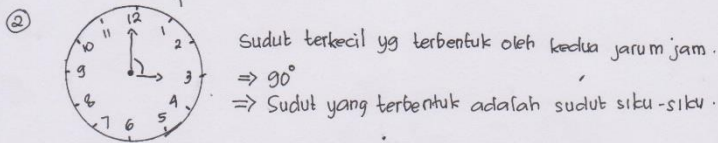 2
12
11 1
10 2
9 3
8 4
7 6 5
Sudut terkecil yg terbentuk oleh kedua jarum jam.
⇒ 90°
⇒ Sudut yang terbentuk adalah sudut siku-siku.